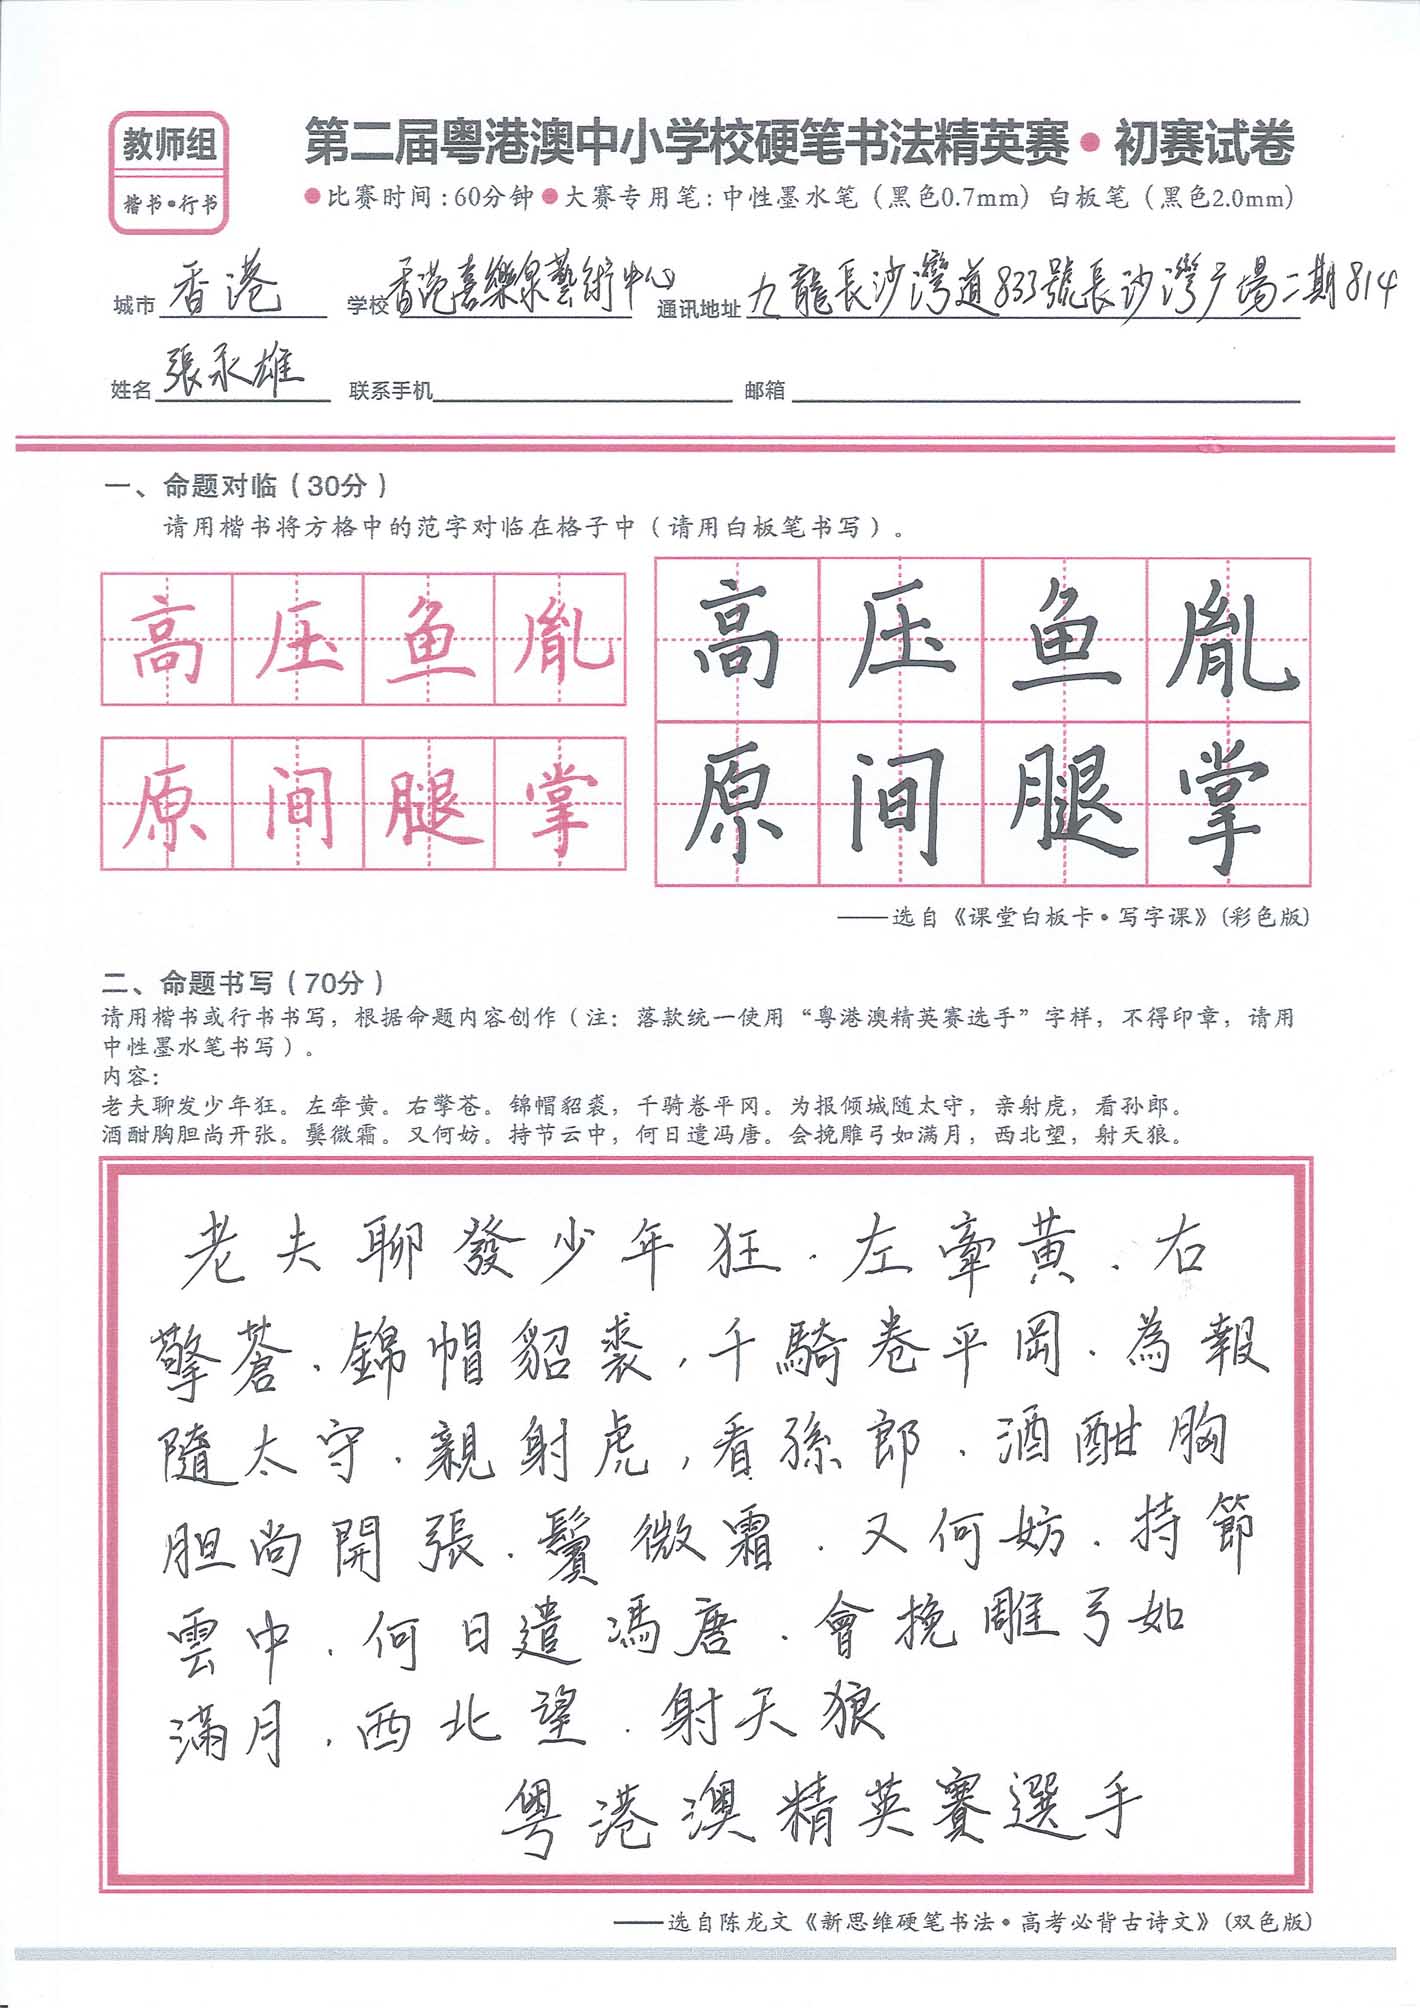 教师组
楷书·行书
第二届粤港澳中小学校硬笔书法精英赛·初赛试卷
●比赛时间:60分钟●大赛专用笔:中性墨水笔(黑色0.7mm)白板笔(黑色2.0mm)
城市 香港 学校 香港喜樂泉藝術中心 通讯地址 九龍長沙灣道833號長沙灣广場二期814
姓名 張永雄 联系手机 邮箱
一、命题对临(30分)
请用楷书将方格中的范字对临在格子中(请用白板笔书写)。
高压鱼胤
原间腿掌
高压鱼胤
原间腿掌
——选自《课堂白板卡·写字课》(彩色版)
二、命题书写(70分)
请用楷书或行书书写,根据命题内容创作(注:落款统一使用“粤港澳精英赛选手”字样,不得印章,请用
中性墨水笔书写)。
内容:
老夫聊发少年狂。左牵黄。右擎苍。锦帽貂裘,千骑卷平冈。为报倾城随太守,亲射虎,看孙郎。
酒酣胸胆尚开张。鬓微霜。又何妨。持节云中,何日遣冯唐。会挽雕弓如满月,西北望,射天狼。
老夫聊發少年狂.左牽黃.右
擎蒼.錦帽貂裘,千騎卷平岡.為報
隨太守.親射虎,看孫郎.酒酣胸
胆尚開張.鬢微霜.又何妨.持節
雲中.何日遣馮唐.會挽雕弓如
滿月.西北望.射天狼
粵港澳精英賽選手
——选自陈龙文《新思维硬笔书法·高考必背古诗文》(双色版)